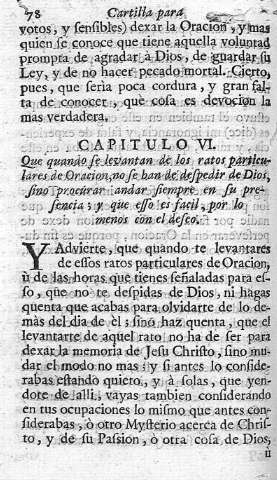 78 Cartilla para
votos, y sensibles) dexar la Oracion, y mas
quien se conoce que tiene aquella voluntad
prompta de agradar à Dios, de guardar su
Ley, y de no hacer pecado mortal. Cierto,
pues, que seria poca cordura, y gran fal-
ta de conocer, que cosa es devocion la
mas verdadera.
CAPITULO VI.
Que quando se levantan de los ratos particu-
lares de Oracion, no se han de despedir de Dios,
sino procurar andar siempre en su pre-
sencia; y que esso es facil, por lo
menos con el deseo.
Y Advierte, que quando te levantares
de essos ratos particulares de Oracion,
ù de las horas que tienes señaladas para es-
so, que no te despidas de Dios, ni hagas
quenta que acabas para olvidarte de lo de-
màs del dia de èl; sinó haz quenta, que el
levantarte de aquel rato no ha de ser para
dexar la memoria de Jesu Christo, sino mu-
dar el modo no mas: y si antes lo conside-
rabas estando quieto, y à solas, que yen-
dote de alli, vayas tambien considerando
en tus ocupaciones lo mismo que antes con-
siderabas, ò otro Mysterio acerca de Chris-
to, y de su Passion, ò otra cosa de Dios,
ù